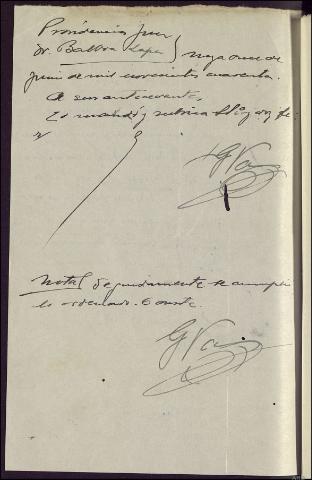 Providencia Juez
Sr. Balboa Lopez } 
Junio de mil novecientos cuarenta.
A sus antecedentes,
Lo mandó y rubrica SSª doy fe:
G Va
Nota/ Seguidamente se cumple
lo ordenado. Conste.
G Va